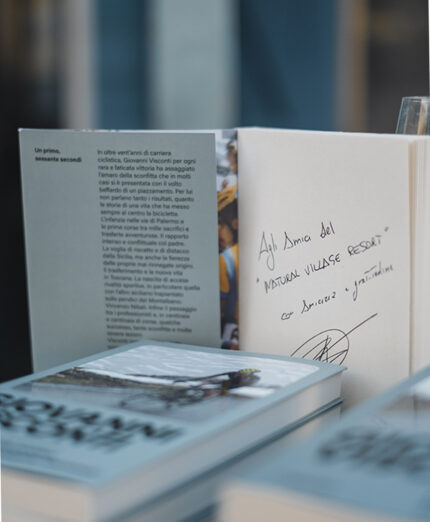 Un primo,
sessanta secondi
In oltre vent'anni di carriera
ciclistica, Giovanni Visconti per ogni
rara e faticata vittoria ha assaggiato
l'amaro della sconfitta che in molti
casi si è presentata con il volto
beffardo di un piazzamento. Per lui
non perlano tanto i risultati, quanto
le storie di una vita che ha messo
sempre al centro la bicicletta.
L'infanzia nelle vie di Palermo e
le prime corse tra mille sacrifici e
trasferte avventurose. Il rapporto
intenso e conflittuale col padre.
La voglia di riscatto e di distacco
dalla Sicilia, ma anche la fierezza
delle proprie mai rinnegate origini.
Il trasferimento e la nuova vita
in Toscana. La nascita di accese
rivalità sportive, in particolare quella
con l'altro siciliano trapiantato
sulle pendici del Montalbano:
Vincenzo Nibali. Infine il passaggio
tra i professionisti e, in centinaia
e centinaia di corse, qualche
successo, tante sconfitte e molte
Agli Amici del
"NATURAL VILLAGE RESORT"
con Amicizia e gratitudine
GIOVANNI
VISCONTI